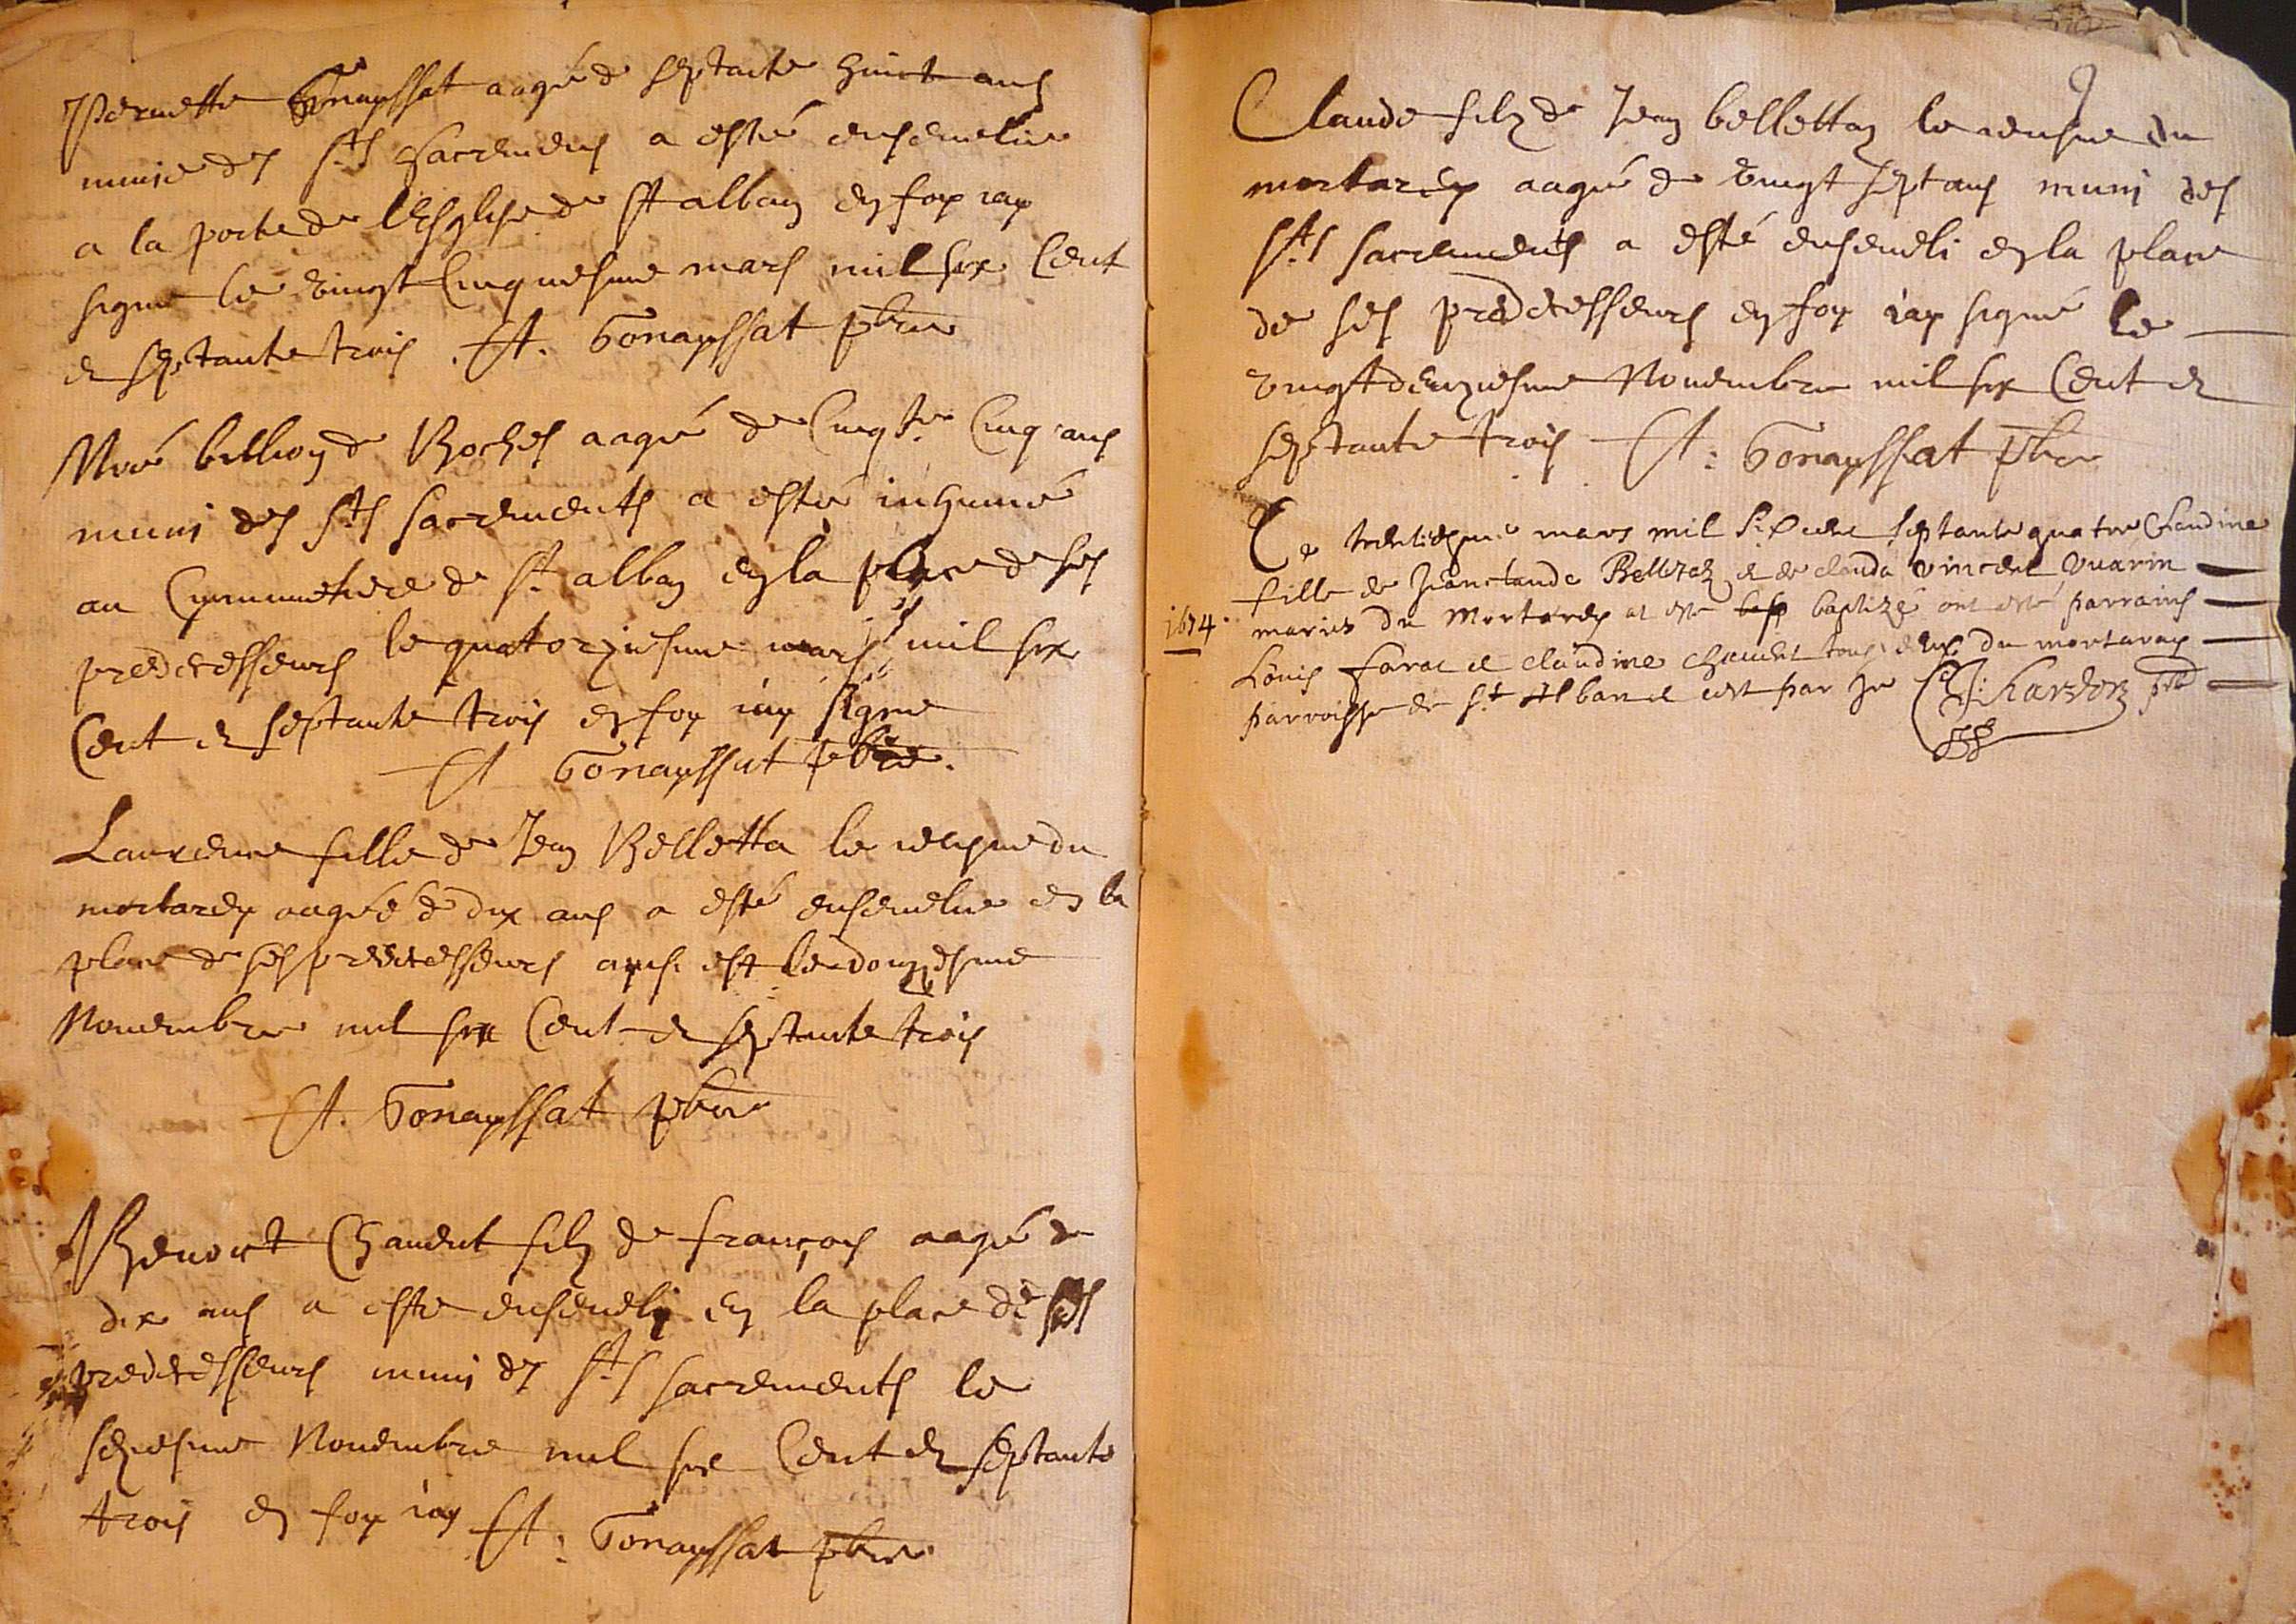 Pernette Gonayssat aagée de septante huict ans
munie des Sts Sacremens a esté ensevelie
a la porte de l'Esglise de St alban en foy iay
signe le vingt Cinquiesme mars mil six Cent
et septante trois . A. Gonayssat pbre
Moré billion de Roches aagé de Cinqte Cinq ans
muni des Sts sacrements a esté inhumé
au Cymmetiere de St alban en la place de ses
predecesseurs le quatorziesme mars mil six
Cent et septante trois en foy iay signe
A Gonayssat pbre.
Laurence fille de Jean Belletta le jeusne du
mortarey aagée de dix ans a esté ensevelie en la
place de ses predecesseurs ainsi est le douziesme
Novembre mil six Cent et septante trois
A. Gonayssat pbre
Benoict Chanut filz de françois aagé de
dix ans a este enseveli en la place de ses
predecesseurs muni des Sts sacrements le
seziesme Novembre mil six Cent et septante
trois en foy iay A: Gonayssat pbre
Claude filz de Jean bellettaz le jeusne du
mortarey aagé de vingt sept ans muni des
Sts sacrements a esté enseveli en la place
de ses predecesseurs en foy iay signé le
vingtdeuziesme Novembre mil six Cent et
septante trois A: Gonayssat pbre
Le trentiesme mars mil six cent septante quatre Claudine
fille de Jeanclaude et de clauda vincent
1674.
mariés du Mortarey at esté bap baptizé ont esté parrains
Louis farat et claudine chanut tous deux du mortaray
parroisse de St Alban et cest par Je pbr